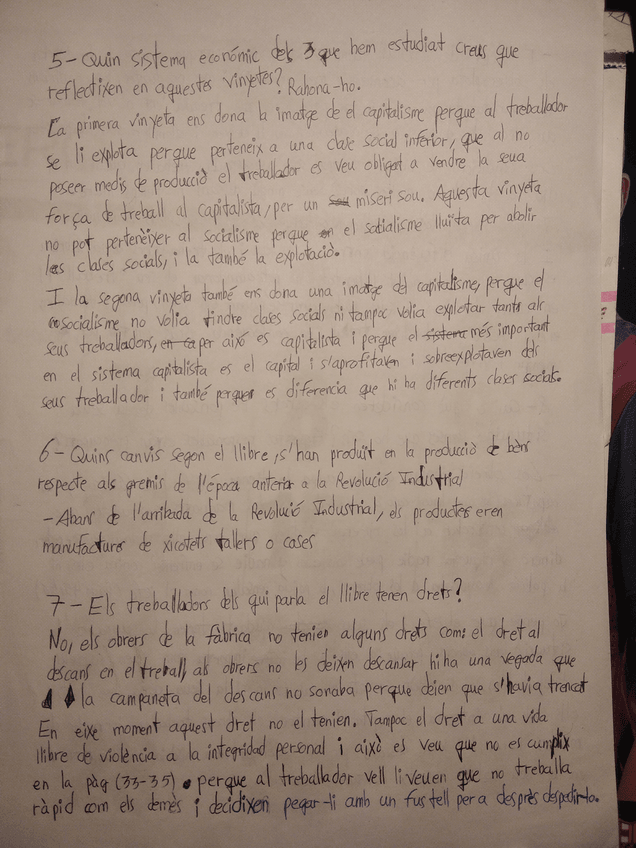 5- Quin sistema económic dels 3 que hem estudiat creus que
reflectixen en aquestes vinyetes? Rahona-ho.
La primera vinyeta ens dona la imatge de el capitalisme perque al treballador
se li explota perque perteneix a una clase social inferior, que al no
poseer medis de producció el treballador es veu obligat a vendre la seua
força de treball al capitalista, per un miseri sou. Aquesta vinyeta
no pot pertenèixer al socialisme perque el sotialisme lluita per abolir
les clases socials, i la també la explotació.
I la segona vinyeta també ens dona una imatge del capitalisme, perque el
socialisme no volia tindre clases socials ni tampoc volia explotar tants als
seus treballadors, per aixó es capitalista i perque el sistema més important
en el sistema capitalista es el capital i s'aprofitaven i sobreexplotaven dels
seus treballador i també perque es diferencia que hi ha diferents clases socials.
6- Quins canvis segon el llibre, s'han produït en la producció de bèns
respecte als gremis de l'época anterior a la Revolució Industrial
-Abans de l'arribada de la Revolució Industrial, els productes eren
manufactures de xicotets tallers o cases
7- Els treballadors dels qui parla el llibre tenen drets?
No, els obrers de la fàbrica no tenien alguns drets com: el dret al
descans en el treball, als obrers no les deixen descansar hi ha una vegada que
la campaneta del descans no sonaba perque deien que s'havia trencat
En eixe moment aquest dret no el tenien. Tampoc el dret a una vida
llibre de violència a la integridad personal i això es veu que no es cumplix
en la pàg (33-35) perque al treballador vell li veuen que no treballa
ràpid com els demès i decidixen pegar-li amb un fustell per a després despedir-lo.